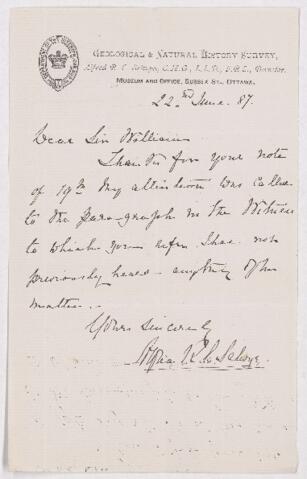 GEOLOGICAL & NATURAL HISTORY SURVEY,
Alfred R. C. Selwyn, C.M.G., LL.D., F.R.S., Director.
MUSEUM AND OFFICE, SUSSEX ST., OTTAWA.
22nd June. 87.
Dear Sir William
Thanks for your note
of 19th My attention was called
to the paragraph in the Witness
to which you refer. I had not
previously heard anything of the
matter.
Yours Sincerely
Alfred R. C. Selwyn.